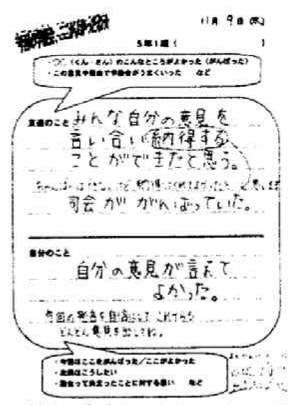 11月9日(水)
5年1組(　　　)
・○○(くん・さん)のこんなところがよかった(がんばった)
・この意見や理由で学級会がうまくいった　など
友達のこと
みんな自分の意見を
言い合い納得する
ことができたと思う。
司会ががんばっていた。
自分のこと
自分の意見が言えて
よかった。
今回の発言を自信にして これからも
どんどん意見を出してね。
・今日はここをがんばった/ここがよかった
・次回はこうしたい
・話合って決まったことに対する思い　など